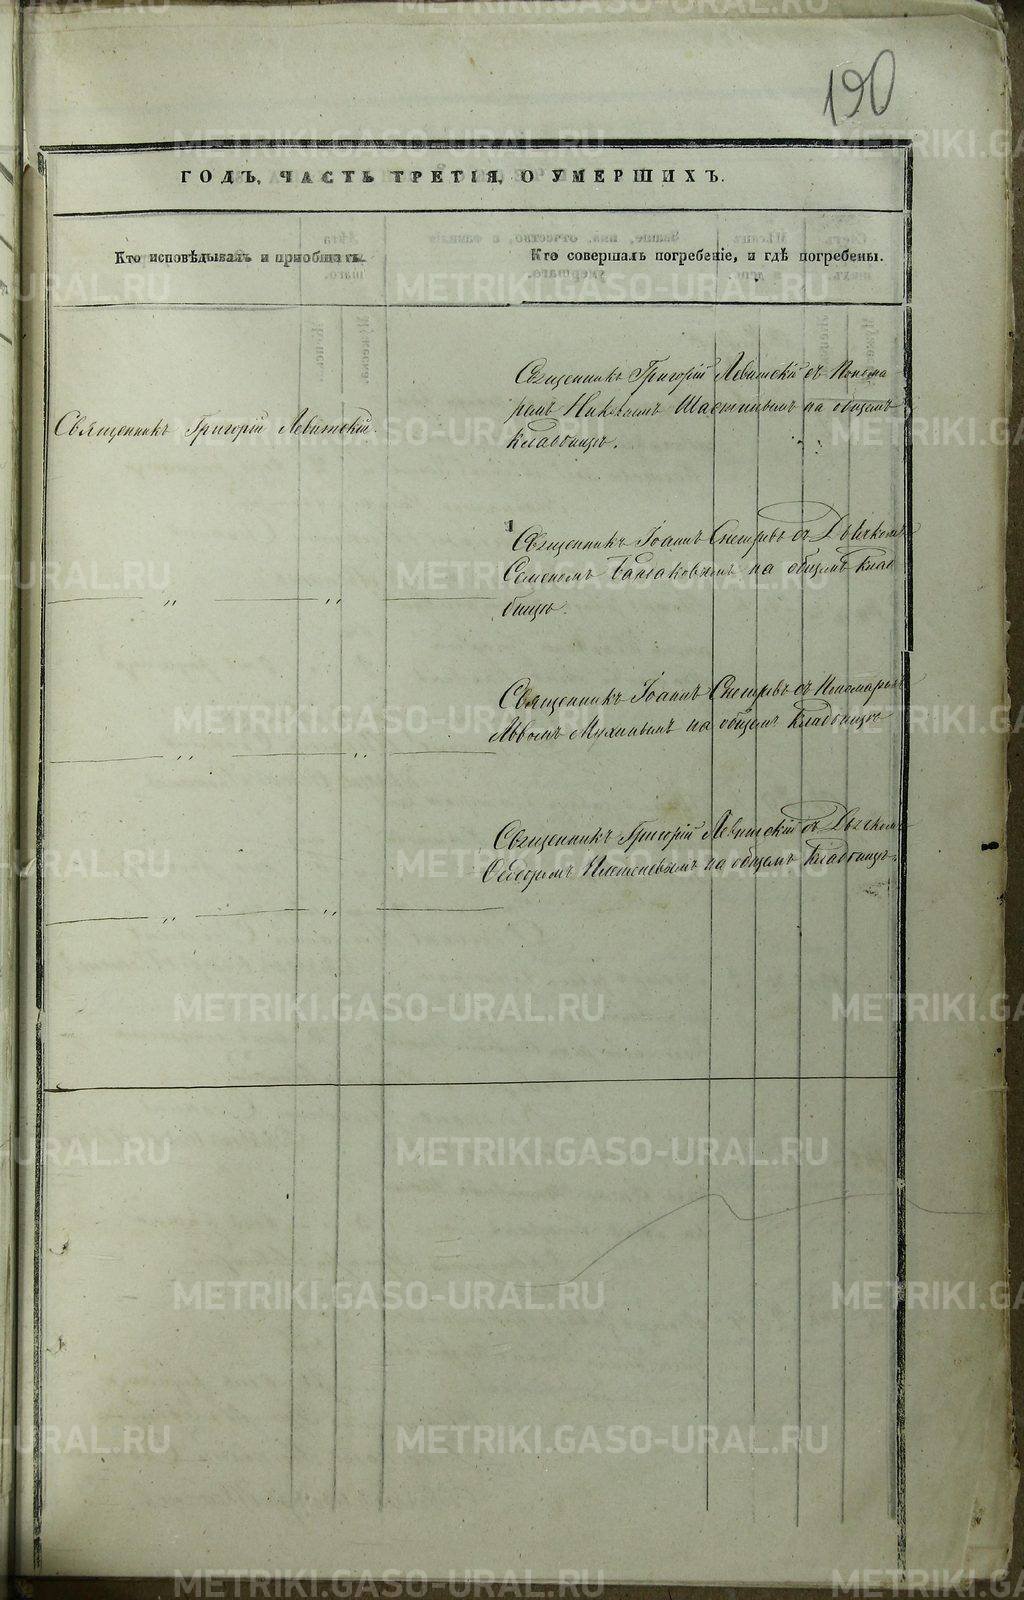 190
ГОДЪ, ЧАСТЬ ТРЕТІЯ, О УМЕРШИХЪ.
Кто исповѣдывалъ и пріобщалъ.
Кто совершалъ погребеніе, и гдѣ погребены.
Священникъ Григорій Левитскій.
Священникъ Григорій Левитскій съ Понома
ремъ на общемъ
кладбищѣ.
Священникъ Іоаннъ съ Дьячкомъ
Семеномъ на общемъ клад
бищѣ.
Священникъ Іоаннъ съ Пономаремъ
Львомъ Мухинымъ на общемъ кладбищѣ
Священникъ Григорій Левитскій съ Дьячкомъ
Ѳедоромъ на общемъ кладбищѣ.
METRIKI.GASO-URAL.RU